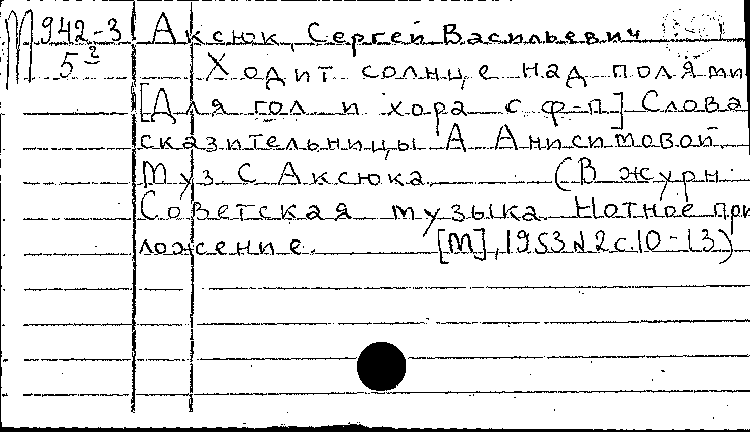 М 942-3 Аксюк, Сергей Васильевич
5³ Ходит солнце над полями
[Для гол и хора с ф-п] Слова
сказительницы А Аниситовой.
Муз С Аксюка. (В журн.
Советская музыка Нотное при
ложение. [М], 1953 № 2 с.10-13)